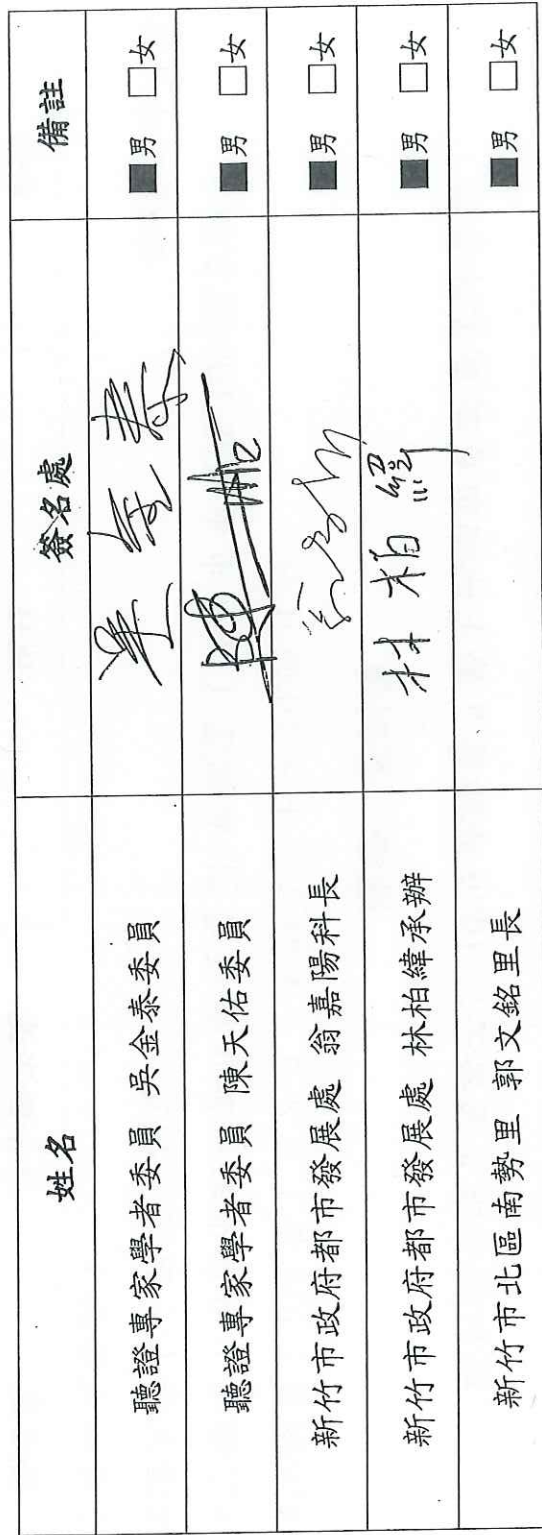 姓名 簽名處 備註
聽證專家學者委員 吳金泰委員 吳金泰 ■男 □女
聽證專家學者委員 陳天佑委員 ■男 □女
新竹市政府都市發展處 翁嘉陽科長 ■男 □女
新竹市政府都市發展處 林柏緯承辦 林柏緯 ■男 □女
新竹市北區南勢里 郭文銘里長 ■男 □女